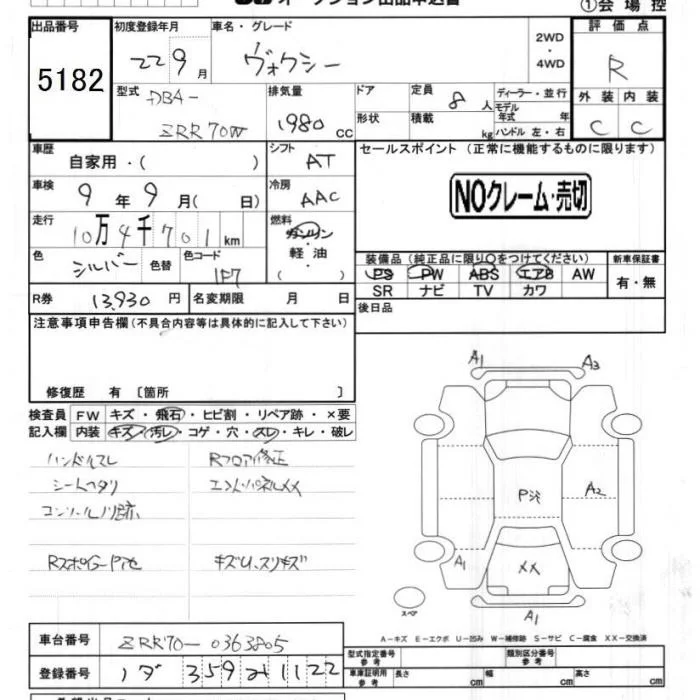 ①会場控
出品番号 5182
初度登録年月 22 9月
車名・グレード ヴォクシー
2WD・4WD
評価点 R
型式 DBA- ZRR70W
排気量 1980 cc
ドア 形状
定員 8人
積載 kg
ディーラー・並行
モデル年式 年
ハンドル 左・右
外装 C
内装 C
車歴 自家用・( )
シフト AT
セールスポイント (正常に機能するものに限ります)
NOクレーム・売切
車検 9年9月( 日)
冷房 AAC
走行 10万4千701km
燃料 ガソリン・軽油・
色 シルバー 色替
色コード 1F7
装備品 (純正品に限り○をつけてください)
PS PW ABS エアB AW
SR ナビ TV カワ
新車保証書 有・無
R券 13,930円
名変期限 月 日
後日品
注意事項申告欄(不具合内容等は具体的に記入して下さい)
修復歴 有〔箇所 〕
検査員記入欄
FW キズ・飛石・ヒビ割・リペア跡・×要
内装 キズ・汚レ・コゲ・穴・スレ・キレ・破レ
ハンドルスレ
Rフロア修正
シートヘタリ
エンドパネルXX
コンソールノリ跡
キズU、スリキズ
A1 A3
P次
A2
A1
XX
A1
スペア
A-キズ E-エクボ U-凹み W-補修跡 S-サビ C-腐食 XX-交換済
車台番号 ZRR70-0363805
登録番号 359 1122
型式指定番号 参考
類別区分番号 参考
車庫証明用 参考 長さ cm 幅 cm 高さ cm